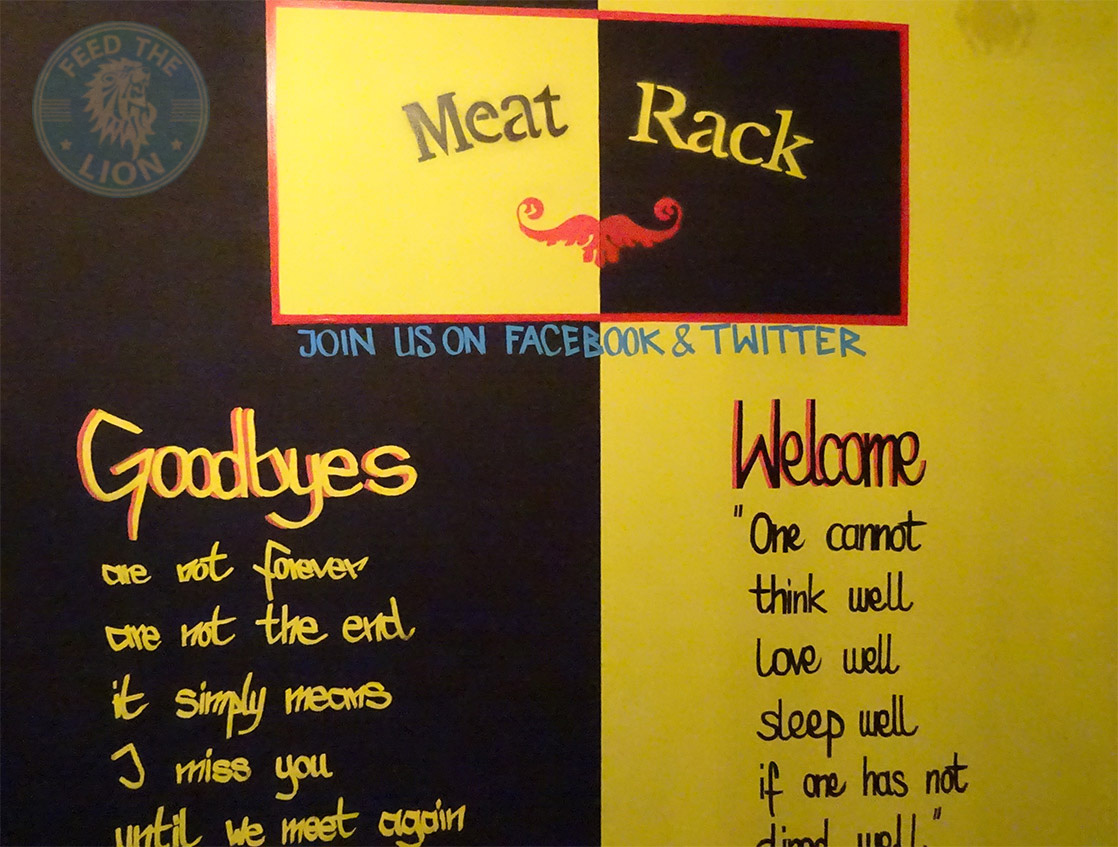 FEED THE
LION
Meat Rack
JOIN US ON FACEBOOK & TWITTER
Goodbyes
are not forever
are not the end
it simply means
I miss you
until we meet again
Welcome
"One cannot
think well
love well
sleep well
if one has not
dined well"